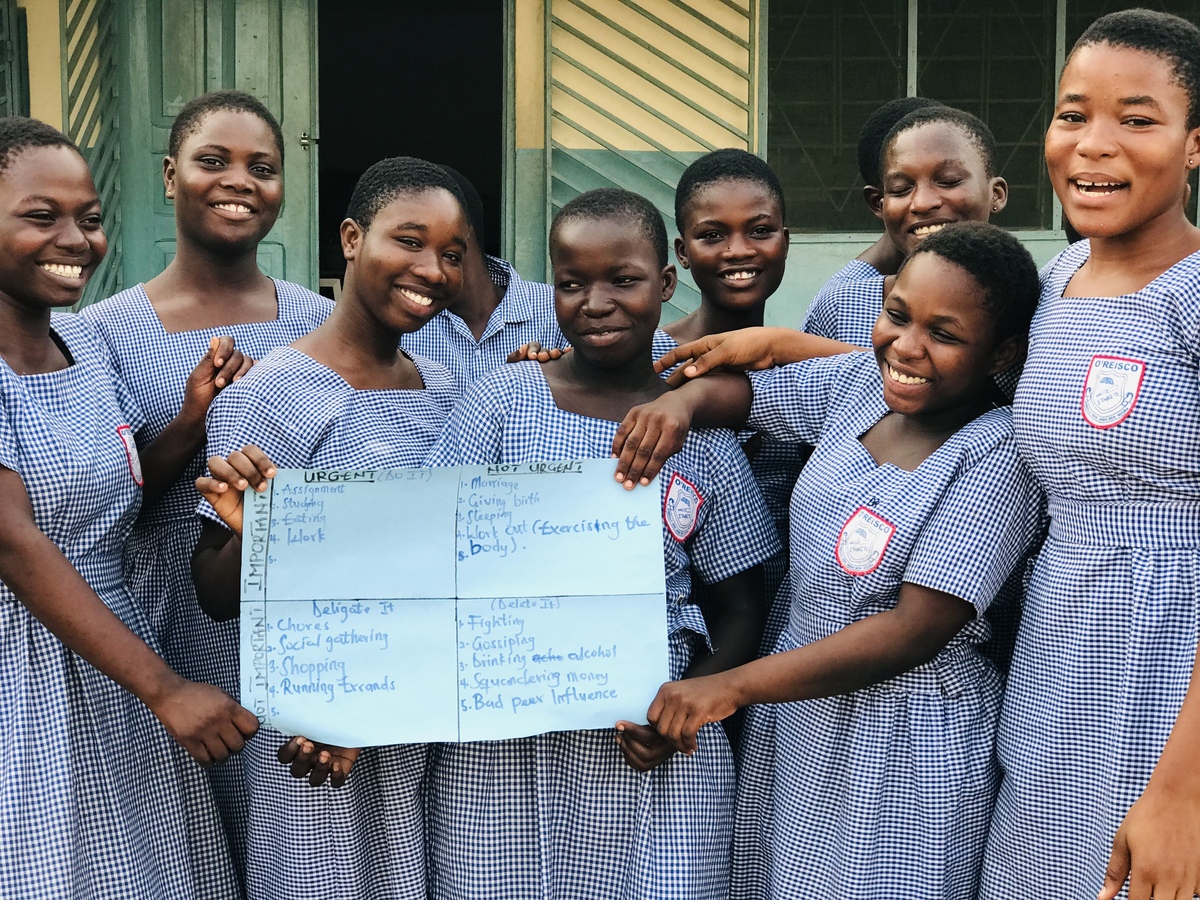 URGENT (DO IT)
1. Assignment
2. Studying
3. Eating
4. Work
5.
NOT URGENT
1. Marriage
2. Giving birth
3. Sleeping
4. Work out (Exercising the
5. body).
IMPORTANT
NOT IMPORTANT
Deligate It
1. Chores
2. Social gathering
3. Shopping
4. Running Errands
5.
(Delete It)
1. Fighting
2. Gossiping
3. Drinking alcohol
4. Squandering money
5. Bad peer Influence
O'REISCO
O'REISCO
O'REISCO